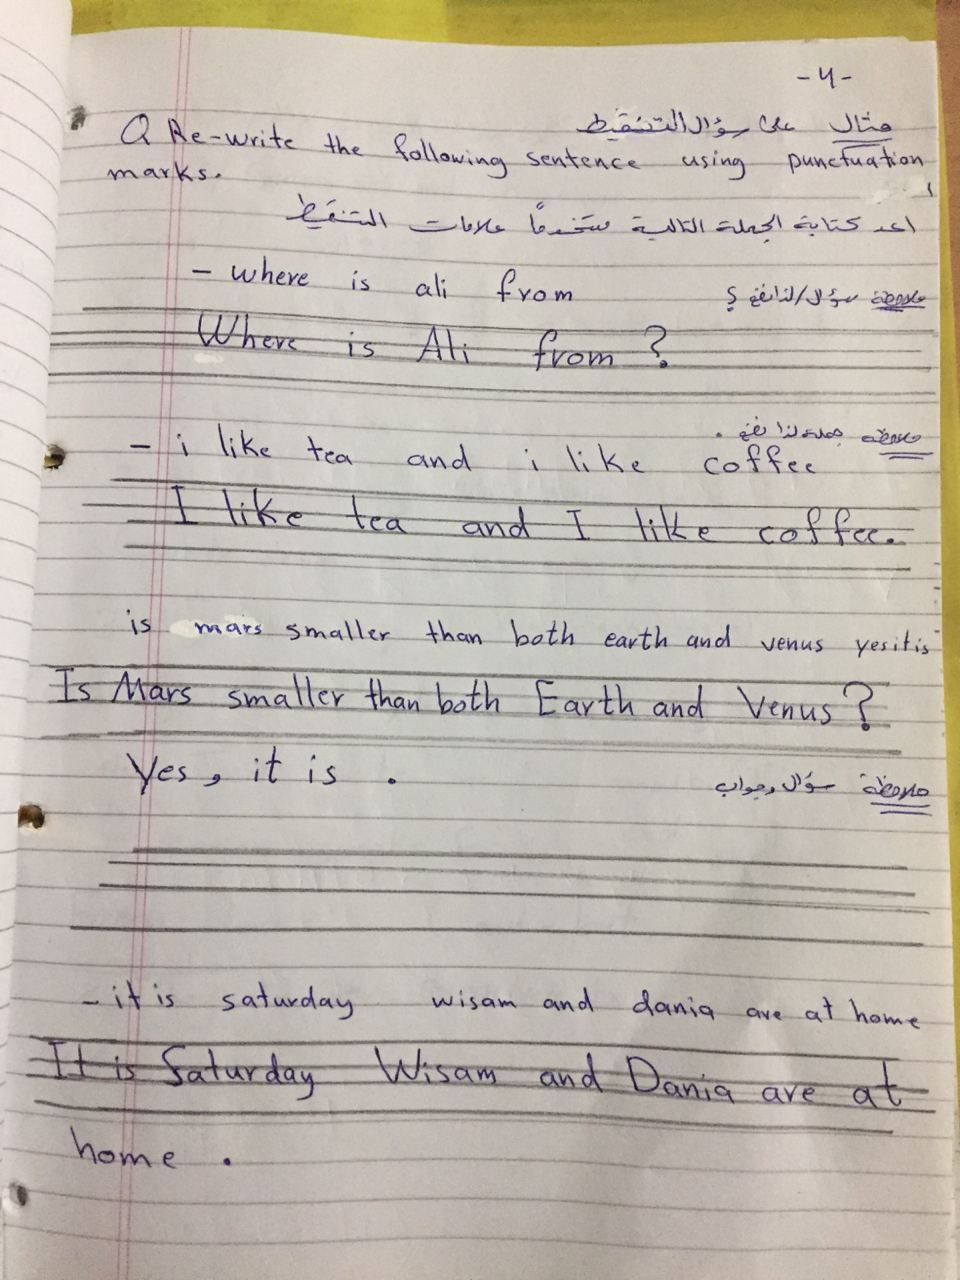 -4-
مثال على سؤال التنقيط
Q Re-write the following sentence using punctuation
marks.
اعد كتابة الجملة التالية مستخدماً علامات التنقيط
- where is ali from
ملاحظة سؤال لذا نضع ؟
Where is Ali from ?
ملاحظة جملة لذا نضع .
- i like tea and i like coffee
I like tea and I like coffee.
is mars smaller than both earth and venus yesitis
Is Mars smaller than both Earth and Venus ?
Yes, it is .
ملاحظة سؤال وجواب
- it is saturday wisam and dania are at home
It is Saturday Wisam and Dania are at
home .